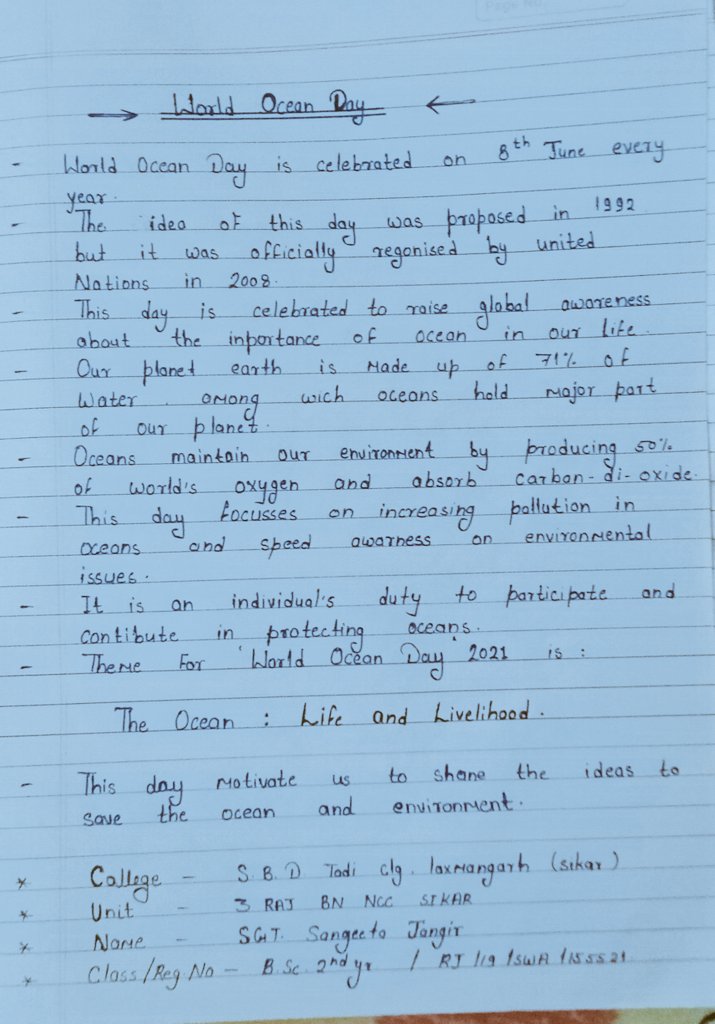 Page No.
→ World Ocean Day ←
- World Ocean Day is celebrated on 8th June every
year.
- The idea of this day was proposed in 1992
but it was officially regonised by united
Nations in 2008.
- This day is celebrated to raise global awareness
about the inportance of ocean in our life.
- Our planet earth is Made up of 71% of
Water. among wich oceans hold major part
of our planet.
- Oceans maintain our environment by producing 50%
of world's oxygen and absorb carbon-di-oxide.
- This day focusses on increasing pollution in
oceans and speed awarness on environmental
issues.
- It is an individual's duty to participate and
contibute in protecting oceans.
- Theme For 'World Ocean Day' 2021 is :
The Ocean : Life and Livelihood.
- This day motivate us to shane the ideas to
save the ocean and environment.
* College - S. B. D Todi clg. laxmangarh (sikar)
* Unit - 3 RAJ BN NCC SIKAR
* Name - SGT. Sangeeta Jangir
* Class/Reg.No - B.Sc. 2nd yr / RJ/19/SWA/155521